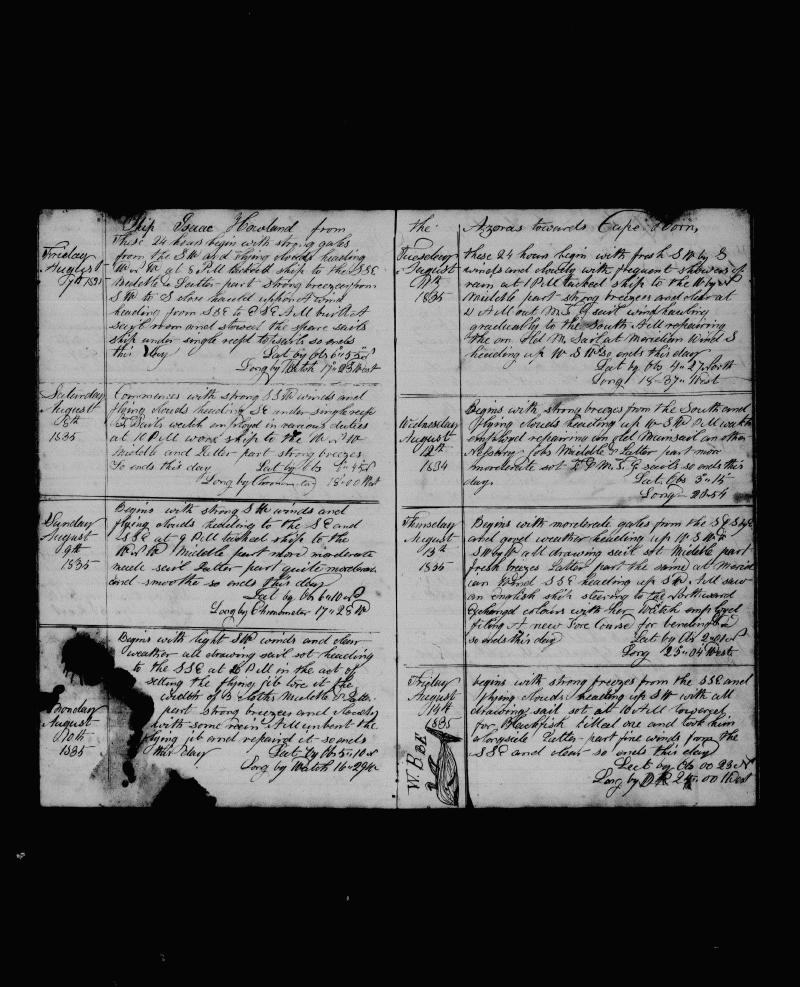 Ship Isaac Howland from
Friday
August
7th 1835
These 24 hours begin with strong gales
from the SW and flying clouds heading
W N W at 8 PM tacked ship to the SSE
Middle & Latter part strong breezes from
SW to S close hauld upon A wind
heading from SSE to ESE AM built A
sail room and stowed the spare sails
ship under single reefd topsails so ends
this day Lat by Obs 6"55 N
Long by Watch 17"23 West
Saturday
August
8th
1835
Commences with strong SSW winds and
flying clouds heading SE under single reef
T Sails watch employd in various duties
at 10 PM wore ship to the W N W
Middle and Latter part strong breezes
So ends this day Lat by Obs 45 N
Long by Chronometer 18"00 West
Sunday
August
9th
1835
Begins with strong SW winds and
flying clouds heading to the SE and
SSE at 9 PM tacked ship to the
W N W Middle part more moderate
made sail Latter part quite moderate
and smoothe so ends this day
Lat by Obs 6"10 N
Long by Chronometer 17"28 W
Monday
August
10th
1835
Begins with light SW winds and clear
weather all drawing sail sot heading
to the SSE at PM in the act of
setting the flying jib tore it the
width of 3 cloths Middle & Latter
part strong breezes and cloudy
with some rain AM unbent the
flying jib and repaird it so ends
this day Lat by Obs 5"10 N
Long by Watch 16"29 W
the Azoras towards Cape Horn
Tuesday
August
11th
1835
these 24 hours begin with fresh SW by S
winds and cloudy with frequent showers of
rain at 1 PM tacked ship to the W by N
Middle part strong breezes and clear at
4 AM out M T G sail wind hauling
gradually to the South AM repairing
the on old M Sail at meridian Wind S
heading up W S W so ends this day
Lat by Obs 4"27 North
Longt 18"37 West
Wednesday
August
12th
1834
Begins with strong breezes from the South and
flying clouds heading up W S W PM watch
employd repairing an old Mainsail an other
Nessary Jobs Middle & Latter part more
moderate sot F & M T G sails so ends this
day Lat Obs 3"15
Long 20"54
Thursday
August
13th
1835
Begins with moderate gales from the S & SSE
and good weather heading up W S W &
SW by W all drawing sail sot Middle part
fresh breezes Latter part the same at Merid
ian Wind SSE heading up SW AM saw
an English ship steering to the Northward
Exchangd colours with her Watch employed
fiting A new Fore Course for bending
so ends this day Lat by Obs 2"01 N
Long 23"04 West
Friday
August
14th
1835
W. B
begins with strong breezes from the SSE and
flying clouds heading up SW with all
drawing sail sot at 10 AM Lowered
for Blackfish killed one and took him
alongside Latter part fine winds from the
SSE and clear so ends this day
Lat by Obs 00 23 N
Long by 24"00 West